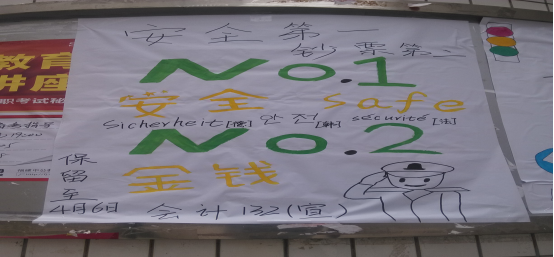 安全第一
钞票第二
No.1
安全 safe
sicherheit[德] 안전[韩] sécurité[法]
No.2
金钱
保留至4月6日
会计132(宣)
教育
讲座